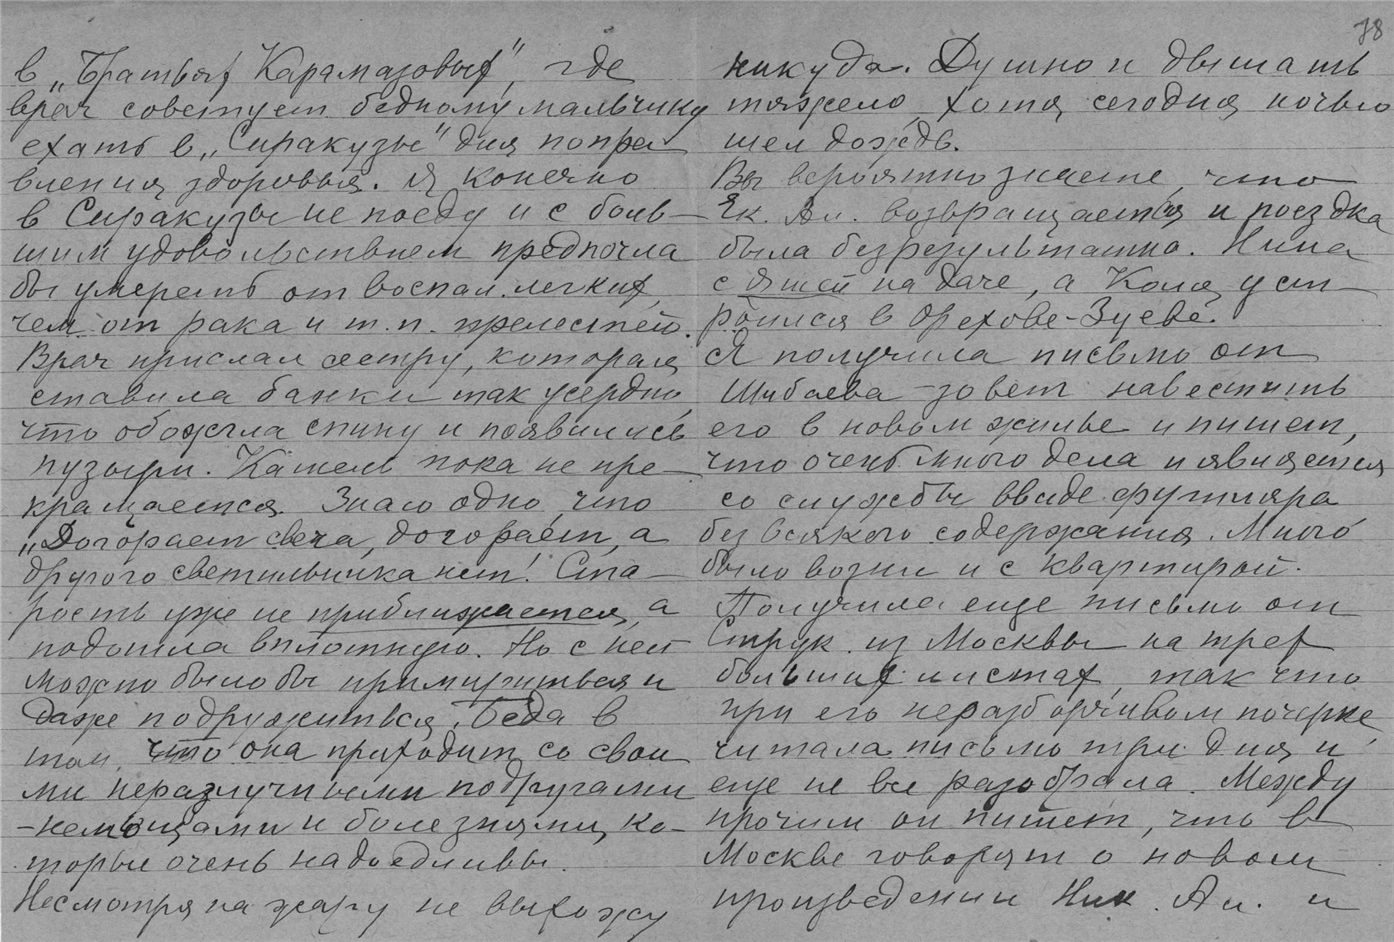 в „Братьях Карамазовых", где
врач советует бедному мальчику
ехать в „Сиракузы" для попра
вления здоровья. Я конечно
в Сиракузы не поеду и с боль-
шим удовольствием предпочла
бы умереть от воспал. легких,
чем от рака и т.п. прелестей.
Врач прислал сестру, которая
ставила банки так усердно,
что обожгла спину и появились
пузыри. Кашель пока не пре-
кращается. Знаю одно, что
„Догорает свеча, догорает, а
другого светильника нет! Ста-
рость уже не приближается, а
подошла вплотную. Но с ней
можно было бы примириться и
даже подружиться. Беда в
том, что она приходит со свои
ми неразлучными подругами
-немощами и болезнями, ко-
торые очень надоедливы.
Несмотря на жару не выхожу
78
никуда. Душно и дышать
тяжело, хотя сегодня ночью
шел дождь.
Вы вероятно знаете, что
Як. Ал. возвращается и поездка
была безрезультатна. Нина
с дятей на даче, а Коля уст-
роился в Орехове-Зуеве.
Я получила письмо от
Шибаева - зовет навестить
его в новом жилье и пишет,
что очень много дела и является
со службы ввиде футляра
без всякого содержания. Много
было возни и с квартирой.
Получила еще письмо от
Струк. из Москвы на трех
больших листах, так что
при его неразборчивом почерке
читала письмо три дня и
еще не все разобрала. Между
прочим он пишет, что в
Москве говорят о новом
произведении Ник. Ал. и